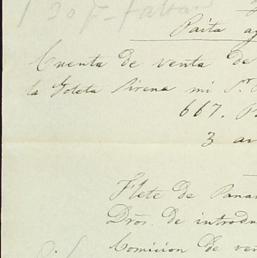 Paita
Cuenta de venta de
la Goleta Sirena mi
667.
3
Flete de Pana
Dros. de introdu
Comicion de ven